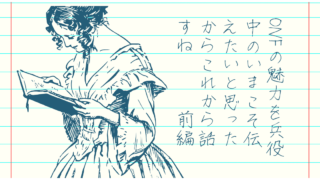 ONFの魅力を兵役
中のいまこそ伝
えたいと思った
からこれから話
すね　前編